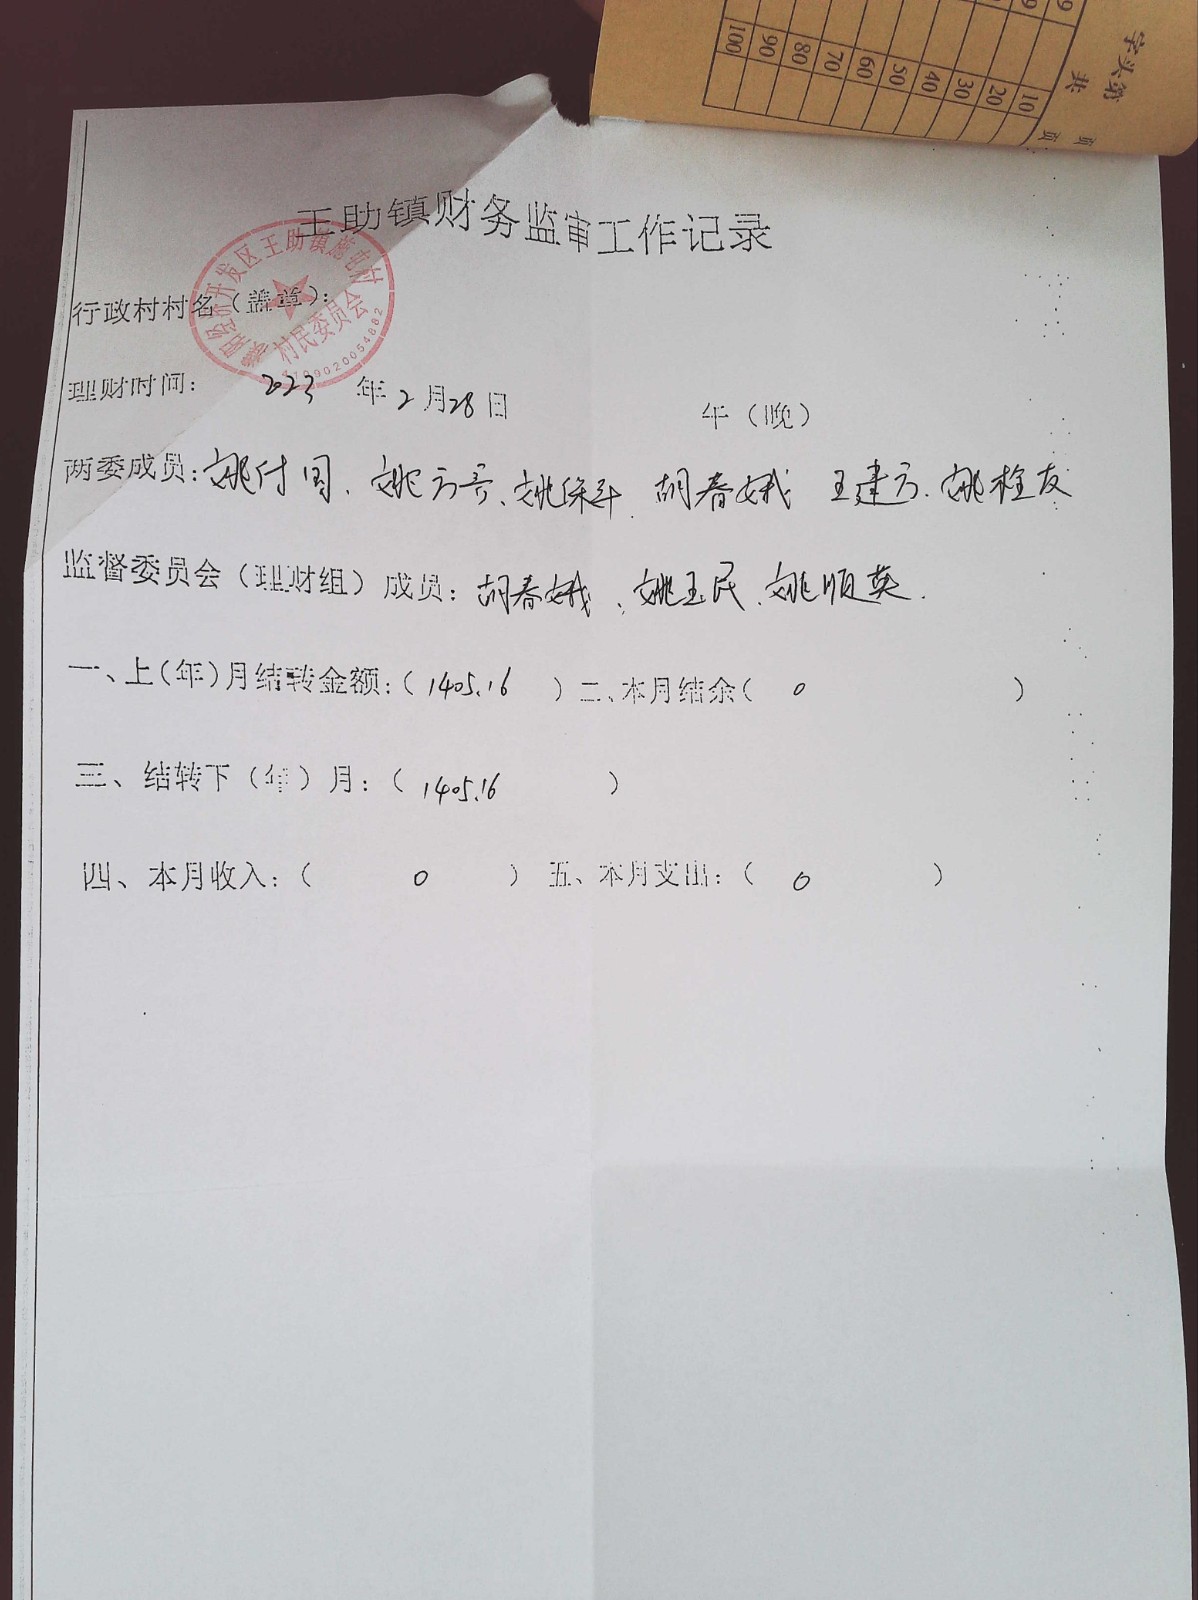 字头第 页
共 页
9
9
10
20
30
40
50
60
70
80
90
100
王助镇财务监审工作记录
开发区王助镇 屯村
村民委员会
行政村村名（盖章）：
理财时间： 2023 年 2 月 28 日 午（晚）
两委成员：姚付周、姚 、姚保军 胡春娥 王建方、姚栓友
监督委员会（理财组）成员：胡春娥、姚玉民、姚顺英.
一、上（年）月结转金额：（ 1405.16 ）二、本月结余（ 0 ）
三、结转下（年）月：（ 1405.16 ）
四、本月收入：（ 0 ） 五、本月支出：（ 0 ）